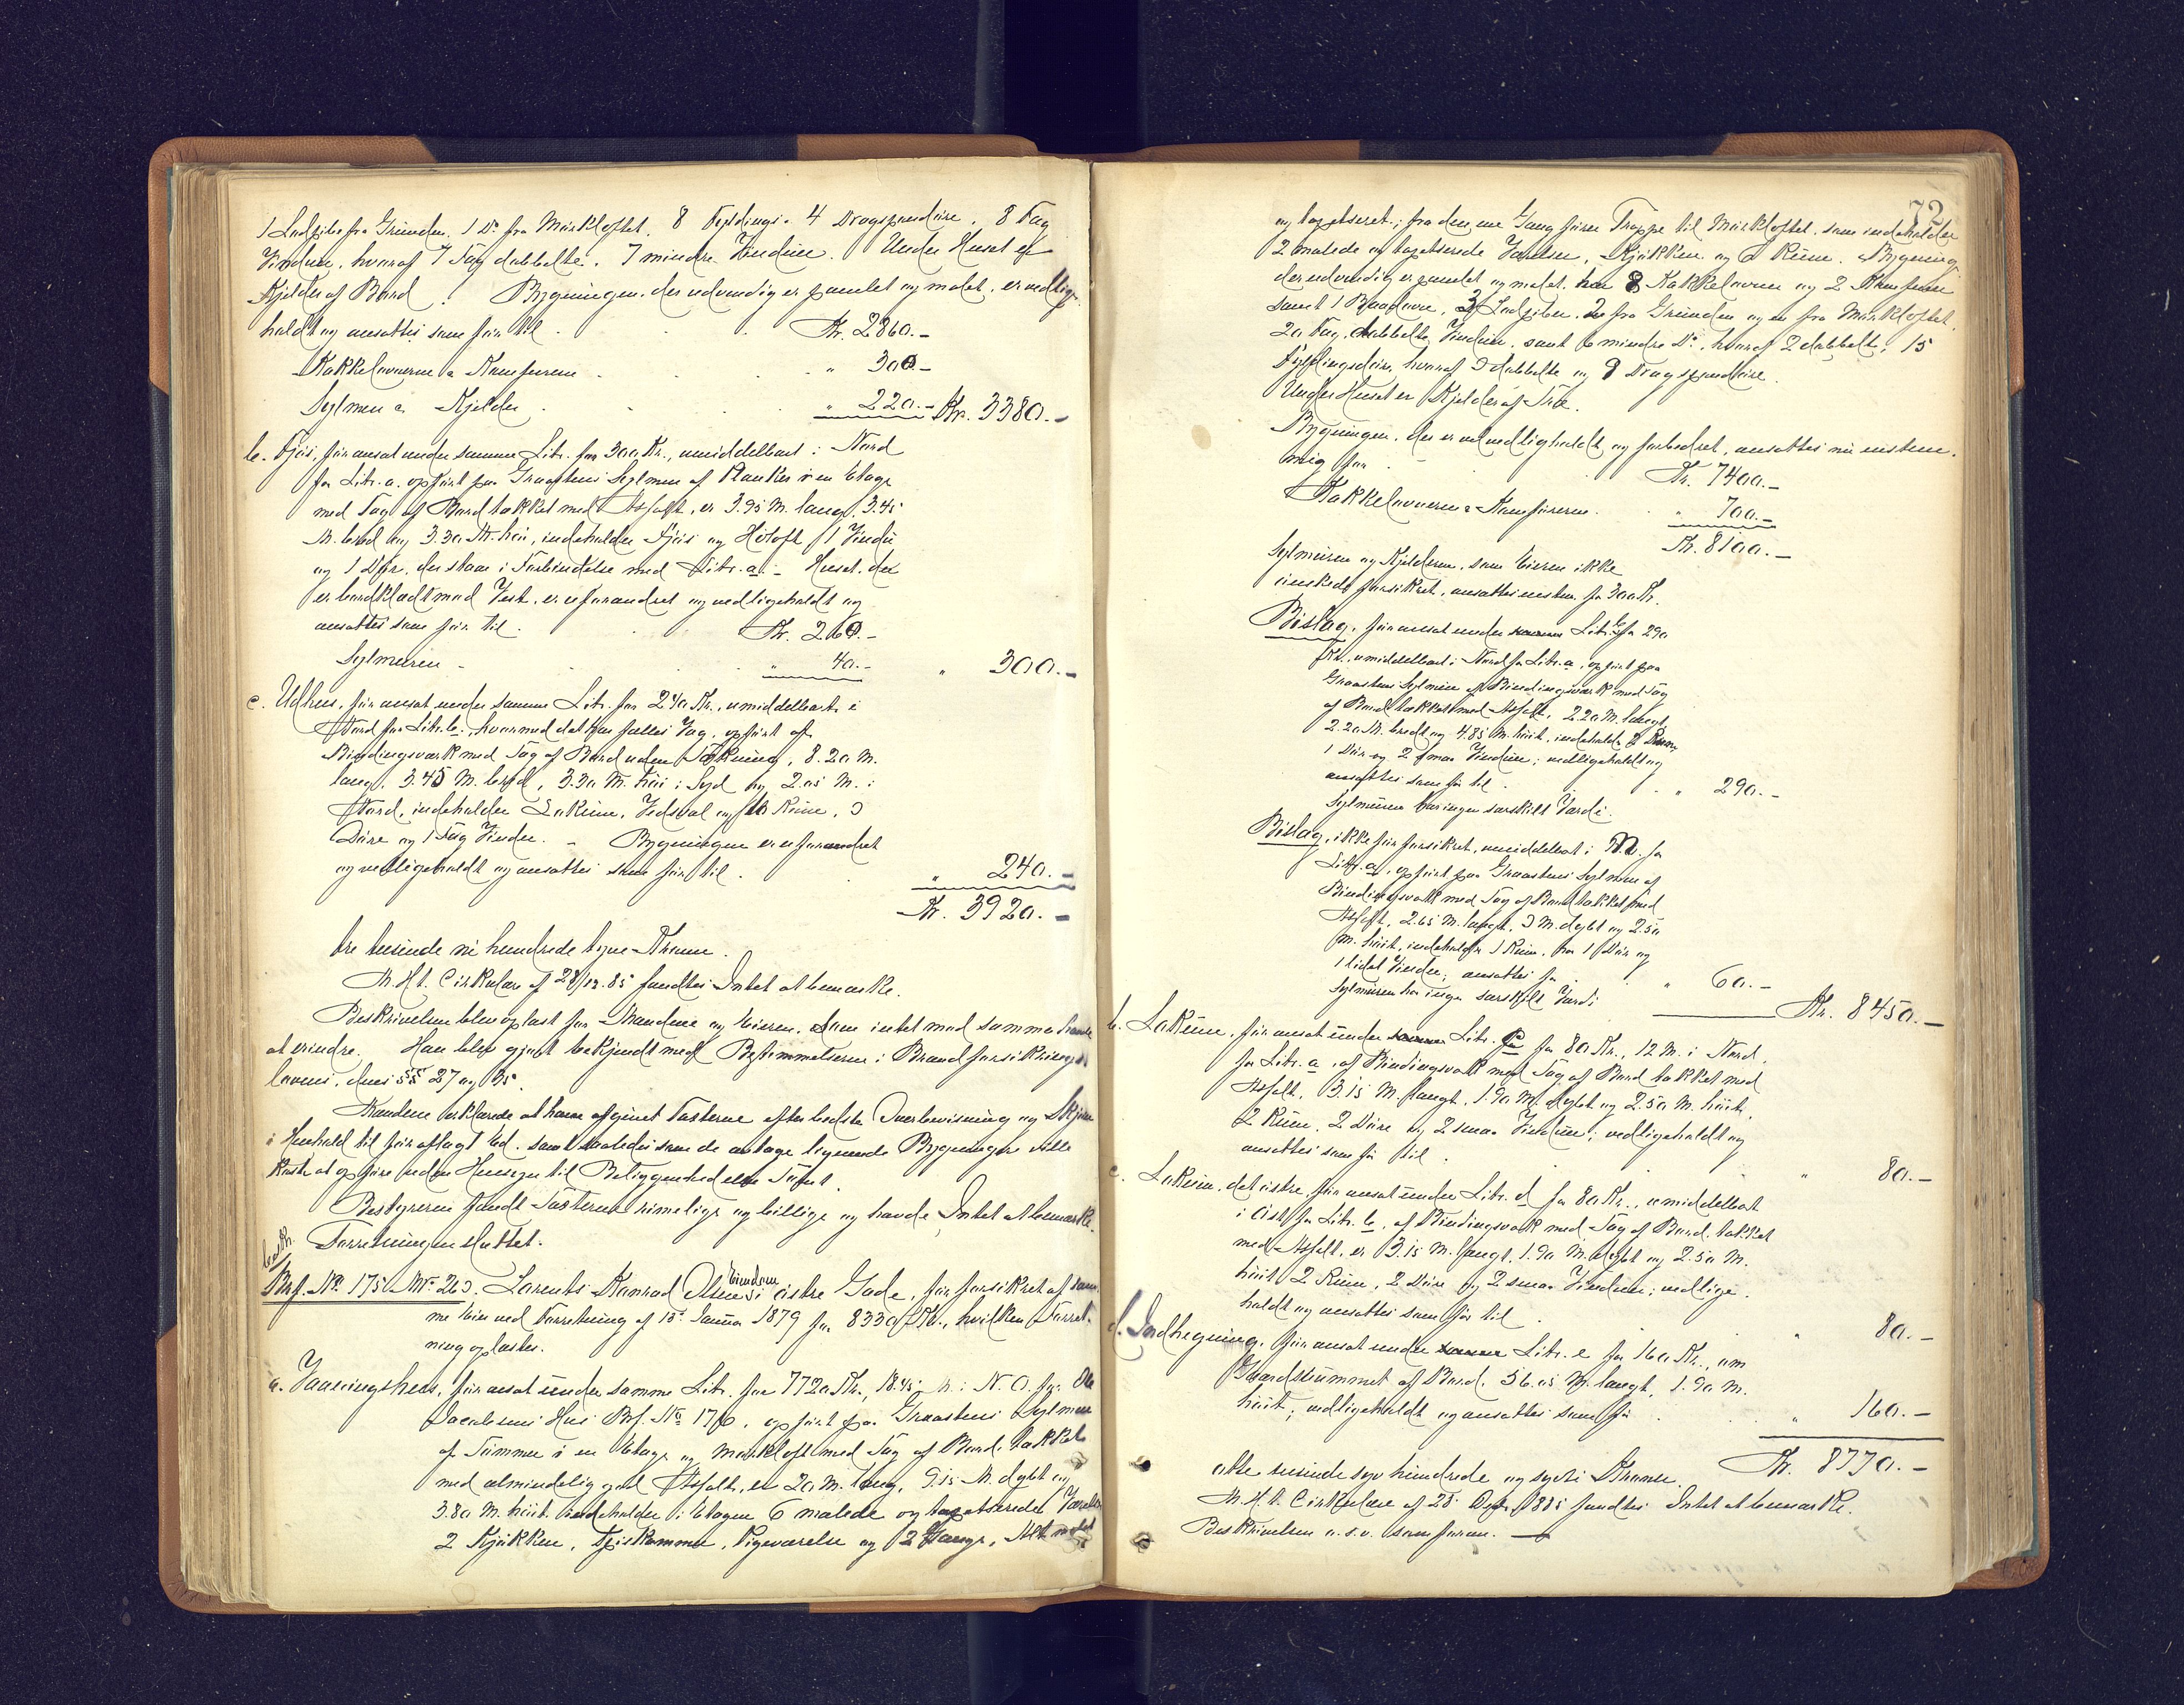 1 Ludpibe fra Grunden. 1 Do fra Mørkloftet. 8 Fyldings- 4 Dragspandøre. 8 Fag
Vinduer, hvoraf 7 Fag dobbelte. 7 mindre Vinduer. Under Huset er
Kjelder af Bord. Bygningen, der udvendig er panelet og malet, er vedlige-
holdt og ansattes som før til Kr. 2860.-
Kakkelovnerne & Komfuren " 300.-
Sylmur & Kjelder " 220.- Kr. 3380.-
b. Fjøs, før ansat under samme Litr. for 300 Kr., umiddelbart i Nord
for Litr. a. opført paa Graastens Sylmur af Planker i en Etage
med Tag af Bord tækket med Asfalt, er 3.95 M. lang, 3.45
M. bred og 3.30 M. høi, indeholder Fjøs og Høloft, 1 Vindu
og 1 Dør, der staar i Forbindelse med Litr. a. - Huset, der
er bordklædt mod Vest, er uforandret og vedligeholdt og
ansattes som før til Kr. 260.-
Sylmuren " 40.- " 300.-
c. Udhus, før ansat under samme Litr. for 240 Kr., umiddelbart i
Nord for Litr. b., hvormed det har fælles Væg, opført af
Bindingsværk med Tag af Bord uden Tækning, 8.20 M.
langt, 3.45 M. bred, 3.30 M. høi i Syd og 2.05 M. i
Nord, indeholder Lokum, Vedsval og Rum, 3
Døre og 1 Fag Vindu. - Bygningen er uforandret
og vedligeholdt og ansattes som før til " 240.-
Kr. 3920.-
tre tusinde ni hundrede tyve Kroner.
M. H. t. Cirkulære af 28/12.85 fandtes Intet at bemærke.
Beskrivelsen blev oplæst for Mændene og Eieren, som intet mod samme havde
at erindre. Han blev gjort bekjendt med Bestemmelserne i Brandforsikrings-
lovens, dens §§ 27 og 35.
Mændene erklærede at have afgivet Taxterne efter bedste Overbevisning og Skjøn
i Henhold til før aflagt Ed, samt saaledes som de antage lignende Bygninger ville
koste at opføre uden Hensyn til Beliggenhed eller Tomt.
Bestyreren fandt Taxterne rimelige og billige og havde Intet at bemærke.
Forretningen sluttet.
Brf. No. 175 Mt. No 263. Lorents Konrad Olsens Eiendom i østre Gade, før forsikret af sam-
me Eier ved Forretning af 15de Januar 1879 for 8330 Kr., hvilken Forret-
ning oplæstes.
a. Vaaningshus, før ansat under samme Litr. for 7720 Kr., 18.45 M. i N. O. for Ole
Jacobsens Hus Brf. No 176, opført paa Graastens Sylmur
af Tømmer i en Etage og Mørkloft med Tag af Bord, tækket
med almindelig god Asfalt, er 20 M. lang, 9.15 M. dybt og
3.80 M. høit, indeholder i Etagen 6 malede og tapetserede Værelser
2 Kjøkken, Spiskammer, Pigeværelse og 2 Gange, Alt malet
72
og tapetseret; fra den ene Gang fører Trappe til Mørkloftet, som indeholder
2 malede og tapetserede Værelser, Kjøkken og Rum. Bygningen,
der udvendig er panelet og malet, har 8 Kakkelovne og 2 Komfurer
samt 1 Bagerovn, 3 Ludpiber, 2 fra Grunden og en fra Mørkloftet,
20 Fag dobbelte Vinduer, samt 6 mindre Do, hvoraf 2 dobbelt, 15
Fyldingsdøre, hvoraf 3 dobbelte og 9 Dragspandøre.
Under Huset er Kjelder af Træ.
Bygningen, der er vel vedligeholdt og forbedret, ansattes nu enstem-
mig for Kr. 7400.-
Kakkelovnene & Komfurerne " 700.-
Kr. 8100.-
Sylmuren og Kjelderen, som Eieren ikke
ønskede forsikret, ansattes enstem. for 300 Kr.
Bislag, før ansat under Litr. b for 290
Kr., umiddelbart i Nord for Litr. a, opført paa
Graastens Sylmur af Bindingsværk med Tag
af Bord tækket med Asfalt, 2.20 M. langt,
2.20 M. bredt og 4.85 M. høit, indeholder 2 Rum,
1 Dør og 2 smaa Vinduer; vedligeholdt og
ansattes som før til " 290.-
Sylmuren har ingen særskilt Værdi.
Bislag, ikke før forsikret, umiddelbart i N. for
Litr. a, opført paa Graastens Sylmur af
Bindingsværk med Tag af Bord tækket med
Asfalt, 2.65 M. langt, 3 M. dybt og 2.50
M. høit, indeholder 1 Rum, har 1 Dør og
1 lidet Vindu; ansattes for " 60.-
Sylmuren har ingen særskilt Værdi Kr. 8450.-
b. Lokum, før ansat under Litr. c for 80 Kr., 12 M. i Nord
for Litr. a, af Bindingsværk med Tag af Bord tækket med
Asfalt, 3.15 M. langt, 1.90 M. dybt og 2.50 M. høit,
2 Rum, 2 Døre og 2 smaa Vinduer; vedligeholdt og
ansattes som før til " 80.-
c. Lokum, det østre, før ansat under Litr. d for 80 Kr., umiddelbart
i Øst for Litr. b, af Bindingsværk med Tag af Bord, tækket
med Asfalt, er 3.15 M. langt, 1.90 M. dybt og 2.50 M.
høit, 2 Rum, 2 Døre og 2 smaa Vinduer; vedlige-
holdt og ansattes som før til " 80.-
d. Indhegning, før ansat under Litr. e for 160 Kr., om
Gaardsrummet af Bord, 36.05 M. langt, 1.90 M.
høit; vedligeholdt og ansattes som før " 160.-
Kr. 8770.-
otte tusinde syv hundrede og sytti Kroner.
M. H. t. Cirkulære af 28 Dcbr 1885 fandtes Intet at bemærke.
Beskrivelsen o. s. v. som foran.